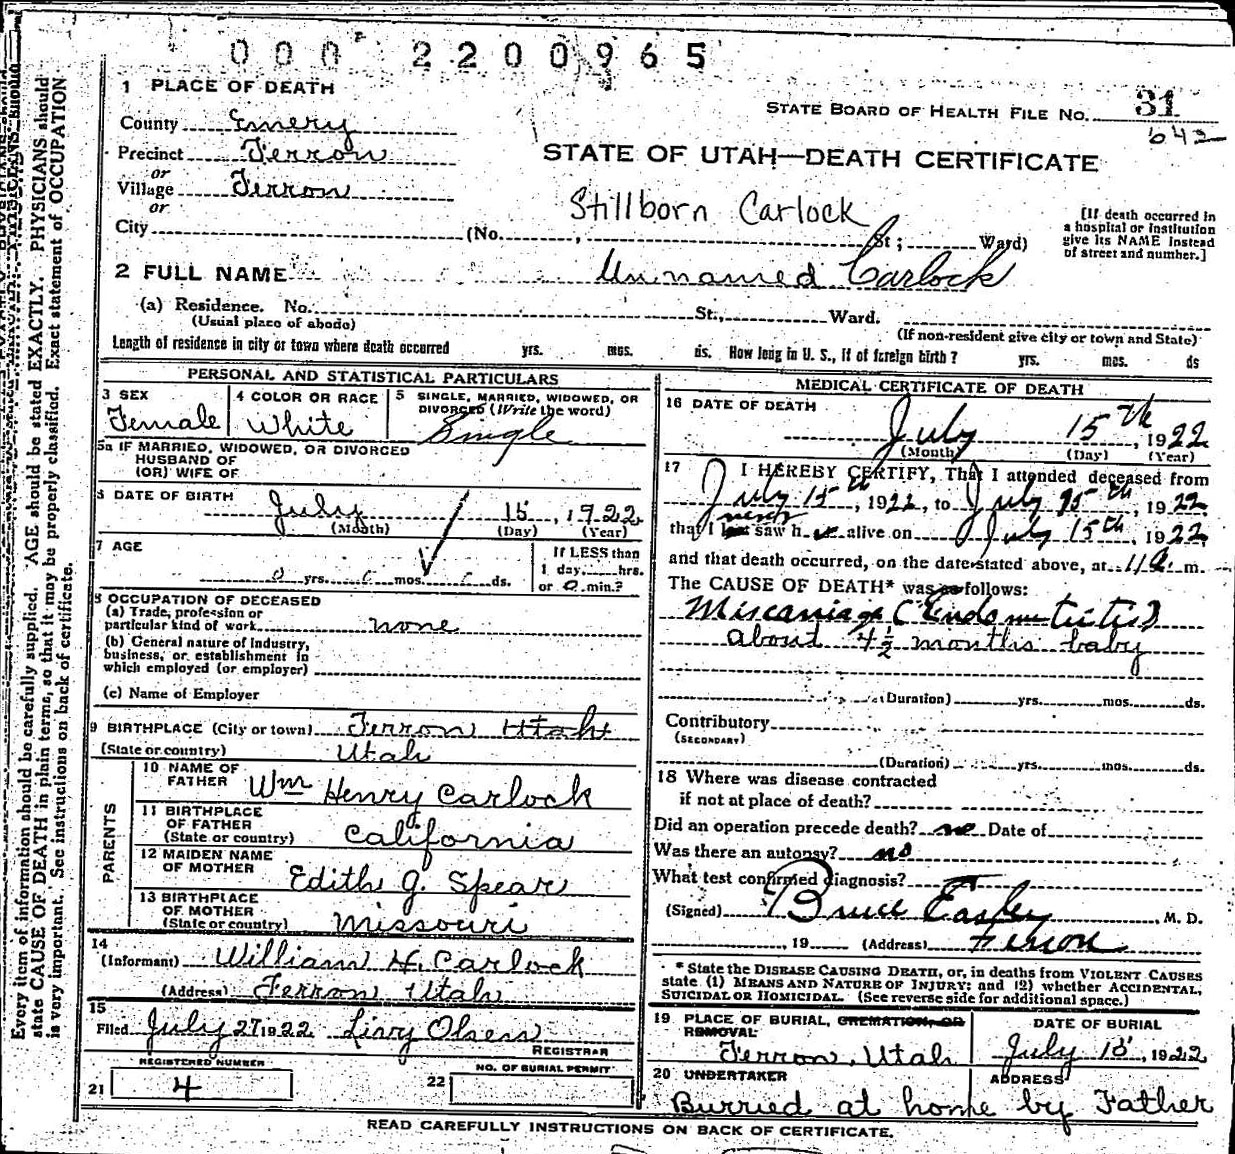 000 2200965
1 PLACE OF DEATH
STATE BOARD OF HEALTH FILE NO. 31
642
County Emery
Precinct Ferron
or
Village Ferron
or
City (No. , St ; Ward)
STATE OF UTAH—DEATH CERTIFICATE
Stillborn Carlock
[If death occurred in
a hospital or institution
give its NAME instead
of street and number.]
2 FULL NAME Unnamed Carlock
(a) Residence. No. St., Ward.
(Usual place of abode) (If non-resident give city or town and State)
Length of residence in city or town where death occurred yrs. mos. ds. How long in U. S., if of foreign birth? yrs. mos. ds
PERSONAL AND STATISTICAL PARTICULARS
3 SEX
Female
4 COLOR OR RACE
White
5 SINGLE, MARRIED, WIDOWED, OR
DIVORCED (Write the word)
Single
5a IF MARRIED, WIDOWED, OR DIVORCED
HUSBAND OF
(OR) WIFE OF
6 DATE OF BIRTH
July 15, 1922
(Month) (Day) (Year)
7 AGE
0 yrs. mos. ds.
If LESS than
1 day, hrs.
or 0 min.?
8 OCCUPATION OF DECEASED
(a) Trade, profession or
particular kind of work none
(b) General nature of Industry,
business, or establishment in
which employed (or employer)
(c) Name of Employer
9 BIRTHPLACE (City or town) Ferron Utah
(State or country) Utah
PARENTS
10 NAME OF
FATHER Wm Henry Carlock
11 BIRTHPLACE
OF FATHER
(State or country) California
12 MAIDEN NAME
OF MOTHER Edith J. Spear
13 BIRTHPLACE
OF MOTHER
(State or country) Missouri
14
(Informant) William H. Carlock
(Address) Ferron Utah
15
Filed July 27 1922 Livy Olsen
REGISTRAR
REGISTERED NUMBER
21 4
NO. OF BURIAL PERMIT
22
MEDICAL CERTIFICATE OF DEATH
16 DATE OF DEATH
July 15th, 1922
(Month) (Day) (Year)
17 I HEREBY CERTIFY, That I attended deceased from
July 15th, 1922, to July 15th, 1922
never
that I last saw h alive on July 15th, 1922,
and that death occurred, on the date stated above, at m.
The CAUSE OF DEATH* was as follows:
Miscarriage (Endometritis)
about 4½ months baby
(Duration) yrs. mos. ds.
Contributory
(SECONDARY)
(Duration) yrs. mos. ds.
18 Where was disease contracted
if not at place of death?
Did an operation precede death? no Date of
Was there an autopsy? no
What test confirmed diagnosis?
(Signed) Bruce Easley M. D.
, 19 (Address) Ferron
* State the DISEASE CAUSING DEATH, or, in deaths from VIOLENT CAUSES
state (1) MEANS AND NATURE OF INJURY; and (2) whether ACCIDENTAL,
SUICIDAL OR HOMICIDAL. (See reverse side for additional space.)
19 PLACE OF BURIAL, CREMATION, OR
REMOVAL
Ferron, Utah
DATE OF BURIAL
July 15, 1922
20 UNDERTAKER
ADDRESS
Burried at home by Father
READ CAREFULLY INSTRUCTIONS ON BACK OF CERTIFICATE.
Every item of information should be carefully supplied. AGE should be stated EXACTLY. PHYSICIANS should
state CAUSE OF DEATH in plain terms, so that it may be properly classified. Exact statement of OCCUPATION
is very important. See instructions on back of certificate.